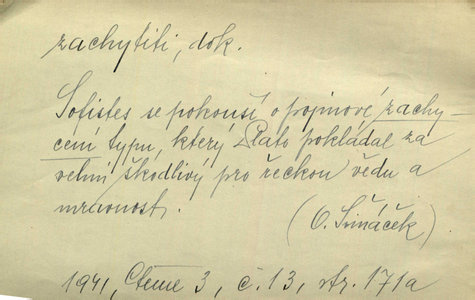 zachytiti, dok.
Sofistes se pokouší o pojmové zachy-
cení typu, který Plato pokládal za
velmi škodlivý pro řeckou vědu a
mravnost.
(O. Šimáček)
1941, Čteme 3, č. 13, str. 171a